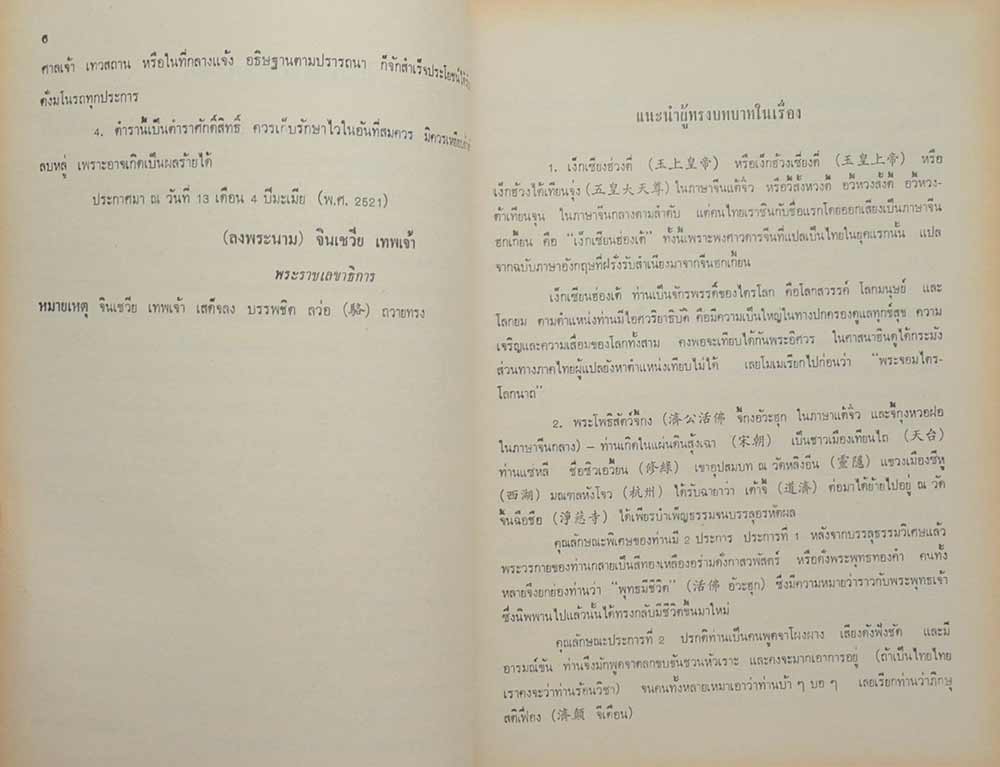 ๖
ศาลเจ้า เทวสถาน หรือในที่กลางแจ้ง อธิษฐานตามปรารถนา ก็จักสำเร็จประโยชน์ให้
ดั่งมโนรถทุกประการ
4. ตำรานี้เป็นตำราศักดิ์สิทธิ์ ควรเก็บรักษาไว้ในอันที่สมควร มิควร
ลบหลู่ เพราะอาจเกิดเป็นผลร้ายได้
ประกาศมา ณ วันที่ 13 เดือน 4 ปีมะเมีย (พ.ศ. 2521)
(ลงพระนาม) จินเซวีย เทพเจ้า
พระราชเลขาธิการ
หมายเหตุ จินเซวีย เทพเจ้า เสด็จลง บรรพชิต ลว่อ (駱) ถวายทรง
แนะนำผู้ทรงบทบาทในเรื่อง
1. เง็กเซียงฮ่วงตี่ (玉上皇帝) หรือเง็กฮ้วงเซี่ยงตี่ (玉皇上帝) หรือ
เง็กฮ้วงไต้เทียนจุง (五皇大天尊) ในภาษาจีนแต้จิ๋ว หรือวี้สั้งหวงตี้ อวี้หวงสั้งตี้ อวี้หวง-
ต้าเทียนจุน ในภาษาจีนกลางตามลำดับ แต่คนไทยเราชินกับชื่อแรกโดยออกเสียงเป็นภาษาจีน
ฮกเกี้ยน คือ “เง็กเซียนฮ่องเต้” ทั้งนี้เพราะพงศาวดารจีนที่แปลเป็นไทยในยุคแรกนั้น แปล
จากฉบับภาษาอังกฤษที่ฝรั่งรับสำเนียงมาจากจีนฮกเกี้ยน
เง็กเซียนฮ่องเต้ ท่านเป็นจักรพรรดิ์ของไตรโลก คือโลกสวรรค์ โลกมนุษย์ และ
โลกยม ตามตำแหน่งท่านมีไอศวริยาธิบัติ คือมีความเป็นใหญ่ในทางปกครองดูแลทุกข์สุข ความ
เจริญและความเสื่อมของโลกทั้งสาม คงพอจะเทียบได้กับพระอิศวร ในศาสนาฮินดูได้กระมัง
ส่วนทางภาคไทยผู้แปลยังหาตำแหน่งเทียบไม่ได้ เลยโมเมเรียกไปก่อนว่า “พระจอมไตร-
โลกนาถ”
2. พระโพธิสัตว์จี้กง (濟公活佛 จี้กงอัวะฮุก ในภาษาแต้จิ๋ว และจี้กุงหวอฝอ
ในภาษาจีนกลาง) – ท่านเกิดในแผ่นดินสุ้งเฉา (宋朝) เป็นชาวเมืองเทียนไถ (天台)
ท่านแซ่หลี่ ชื่อซิวเอวี้ยน (修緣) เขาอุปสมบท ณ วัดหลิงอึ่น (靈隱) แขวงเมืองซีหู
(西湖) มณฑลหังโจว (杭州) ได้รับฉายาว่า เต้าจี้ (道濟) ต่อมาได้ย้ายไปอยู่ ณ วัด
จิ้นฉือซื่อ (淨慈寺) ได้เพียรบำเพ็ญธรรมจนบรรลุอรหัตผล
คุณลักษณะพิเศษของท่านมี 2 ประการ ประการที่ 1 หลังจากบรรลุธรรมวิเศษแล้ว
พระวรกายของท่านกลายเป็นสีทองเหลืองอร่ามดั่งกาสวพัสตร์ หรือดั่งพระพุทธทองคำ คนทั้ง
หลายจึงยกย่องท่านว่า “พุทธมีชีวิต” (活佛 อัวะฮุก) ซึ่งมีความหมายว่าราวกับพระพุทธเจ้า
ซึ่งนิพพานไปแล้วนั้นได้ทรงกลับมีชีวิตขึ้นมาใหม่
คุณลักษณะประการที่ 2 ปรกติท่านเป็นคนพูดจาโผงผาง เสียงดังฟังชัด และมี
อารมณ์ขัน ท่านจึงมักพูดจาตลกขบขันชวนหัวเราะ และคงจะมากเอาการอยู่ (ถ้าเป็นไทยไทย
เราคงจะว่าท่านร้อนวิชา) จนคนทั้งหลายเหมาเอาว่าท่านบ้า ๆ บอ ๆ เลยเรียกท่านว่าภิกษุ
สติเฟื่อง (濟顛 จี้เตียน)